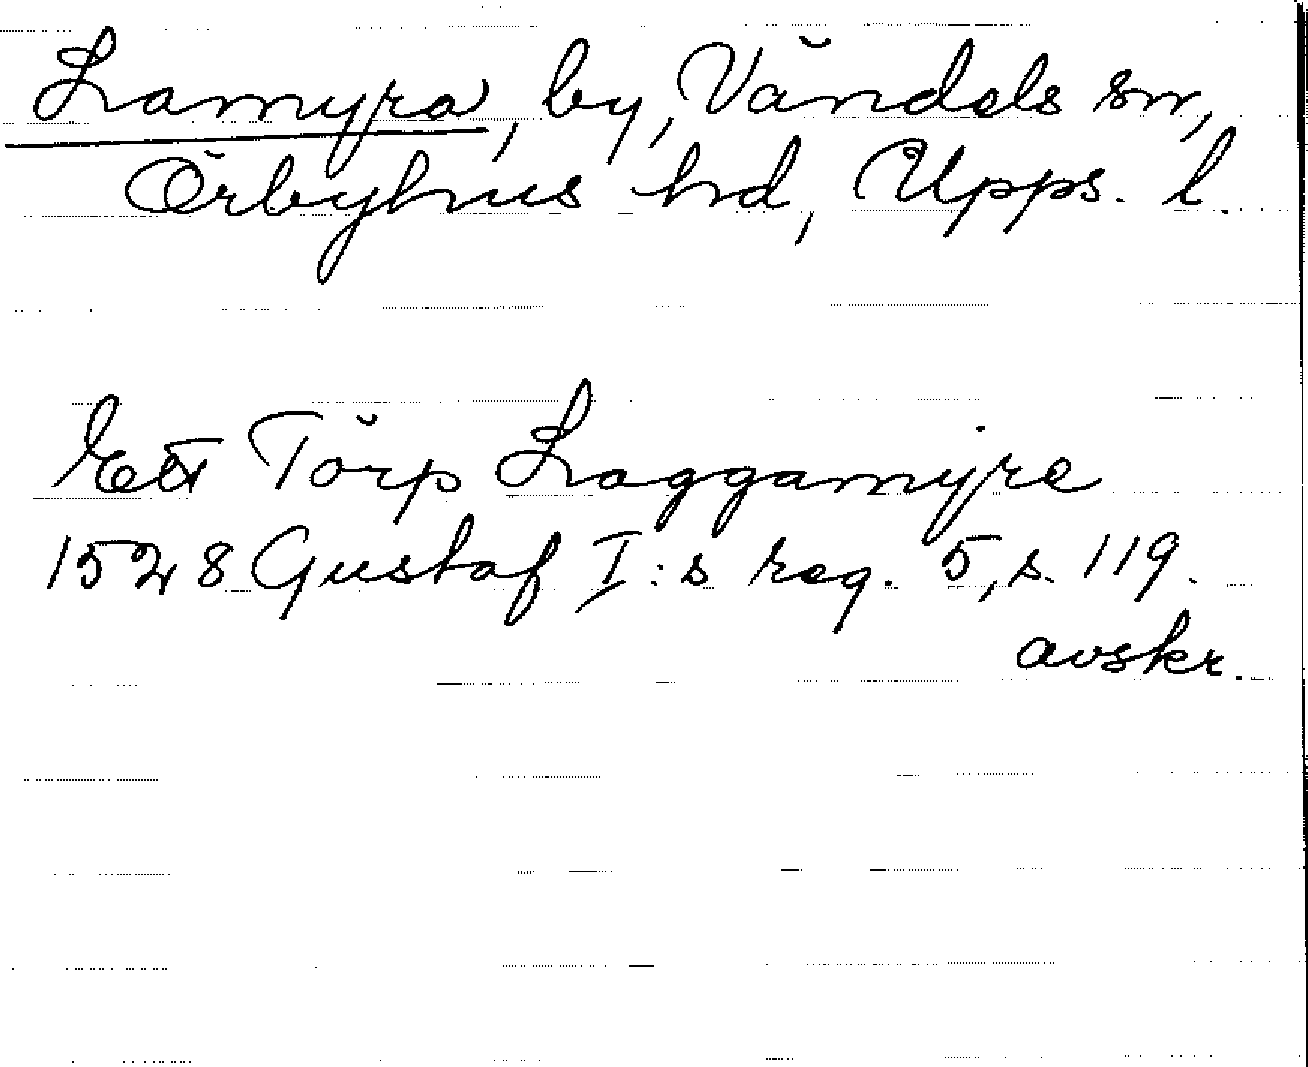 Lamyra, by, Vändels sn,
Örbyhus hd, Upps. l.
Ett Törp Laggamÿre
1528 Gustaf I:s reg. 5, s. 119.
avskr.